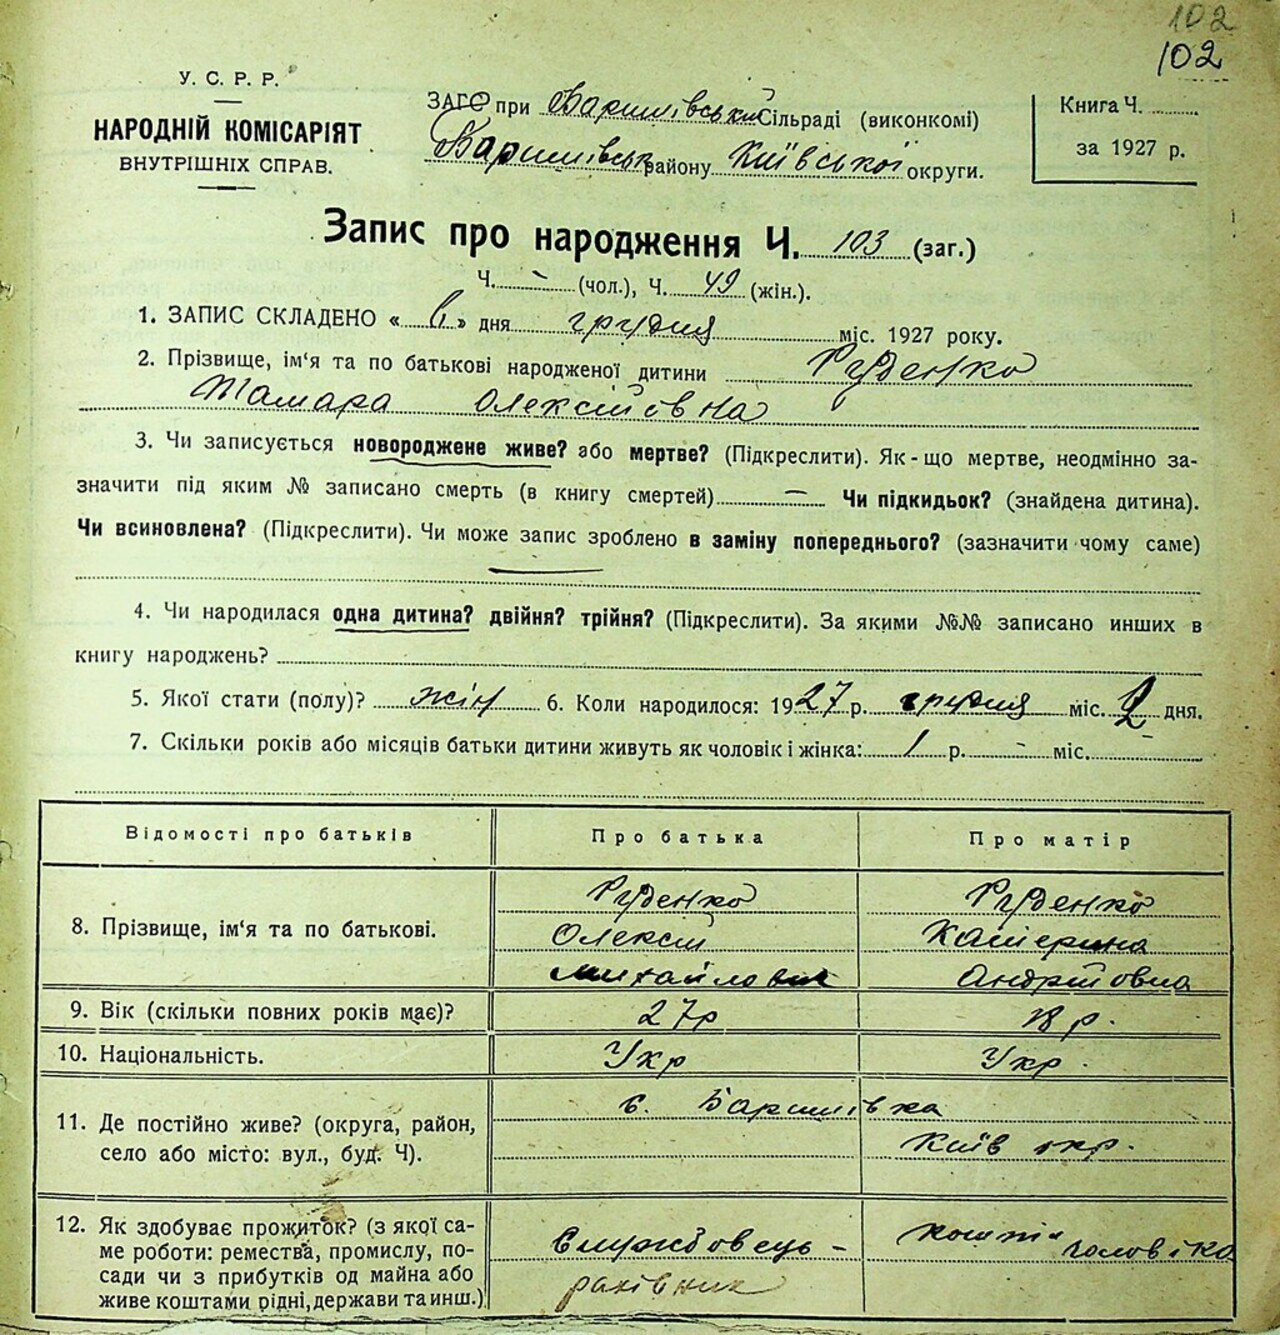 102
102
У. С. Р. Р.
НАРОДНІЙ КОМІСАРІЯТ
ВНУТРІШНІХ СПРАВ.
ЗАГС при Баришівський Сільраді (виконкомі)
Баришівськ району Київської округи.
Книга Ч.
за 1927 р.
Запис про народження Ч. 103 (заг.)
Ч. – (чол.), Ч. 49 (жін.).
1. ЗАПИС СКЛАДЕНО « » дня грудня міс. 1927 року.
2. Прізвище, ім'я та по батькові народженої дитини Руденко
Тамара Олексіївна
3. Чи записується новороджене живе? або мертве? (Підкреслити). Як-що мертве, неодмінно за-
значити під яким № записано смерть (в книгу смертей) – Чи підкидьок? (знайдена дитина).
Чи всиновлена? (Підкреслити). Чи може запис зроблено в заміну попереднього? (зазначити чому саме)
4. Чи народилася одна дитина? двійня? трійня? (Підкреслити). За якими №№ записано инших в
книгу народжень?
5. Якої стати (полу)? жін 6. Коли народилося: 1927 р. грудня міс. 2 дня.
7. Скільки років або місяців батьки дитини живуть як чоловік і жінка: 1 р. – міс. –
Відомості про батьків Про батька Про матір
8. Прізвище, ім'я та по батькові.
Руденко Руденко
Олексій Катерина
Михайлович Андріївна
9. Вік (скільки повних років має)? 27р 18 р.
10. Національність. Укр Укр.
11. Де постійно живе? (округа, район,
село або місто: вул., буд. Ч).
с. Баришівка
Київ окр.
12. Як здобуває прожиток? (з якої са-
ме роботи: ремества, промислу, по-
сади чи з прибутків од майна або
живе коштами рідні, держави та инш.)
Службовець –
рахівник
кошти
чоловіка